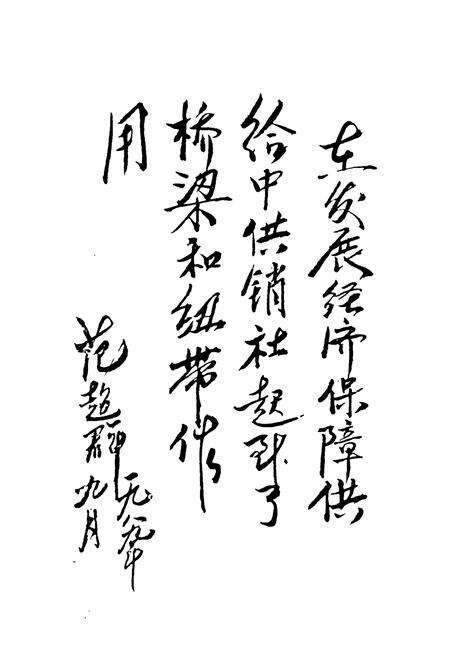 在发展经济保障供
给中供销社起到了
桥梁和纽带作
用
范超群
九月